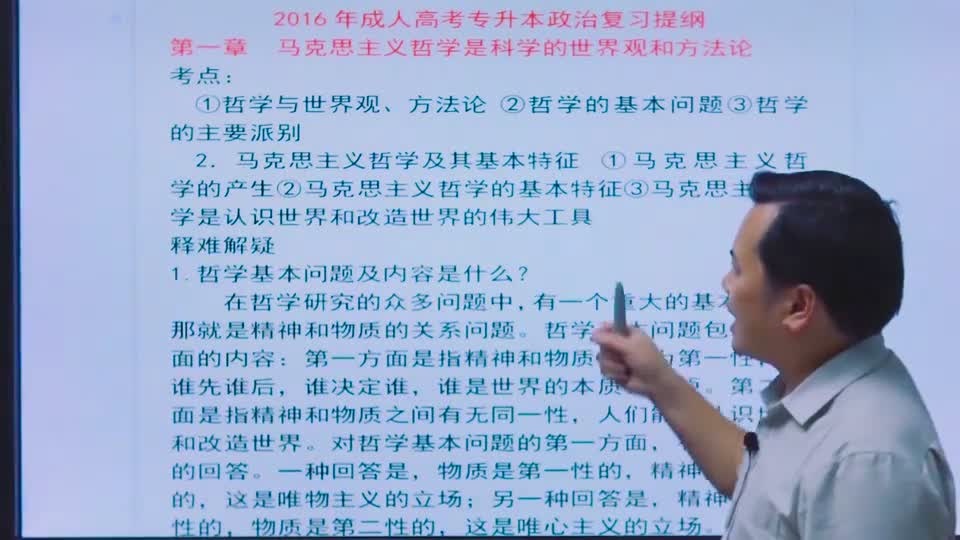 2016 年成人高考专升本政治复习提纲
第一章 马克思主义哲学是科学的世界观和方法论
考点：
①哲学与世界观、方法论 ②哲学的基本问题③哲学
的主要派别
2．马克思主义哲学及其基本特征 ①马克思主义哲
学的产生②马克思主义哲学的基本特征③马克思主
学是认识世界和改造世界的伟大工具
释难解疑
1. 哲学基本问题及内容是什么？
在哲学研究的众多问题中，有一个重大的基本
那就是精神和物质的关系问题。哲学 本问题包
面的内容：第一方面是指精神和物质 为第一性
谁先谁后，谁决定谁，谁是世界的本质 第
面是指精神和物质之间有无同一性，人们能 识
和改造世界。对哲学基本问题的第一方面，
的回答。一种回答是，物质是第一性的，精神
的，这是唯物主义的立场；另一种回答是，精神
性的，物质是第二性的，这是唯心主义的立场。